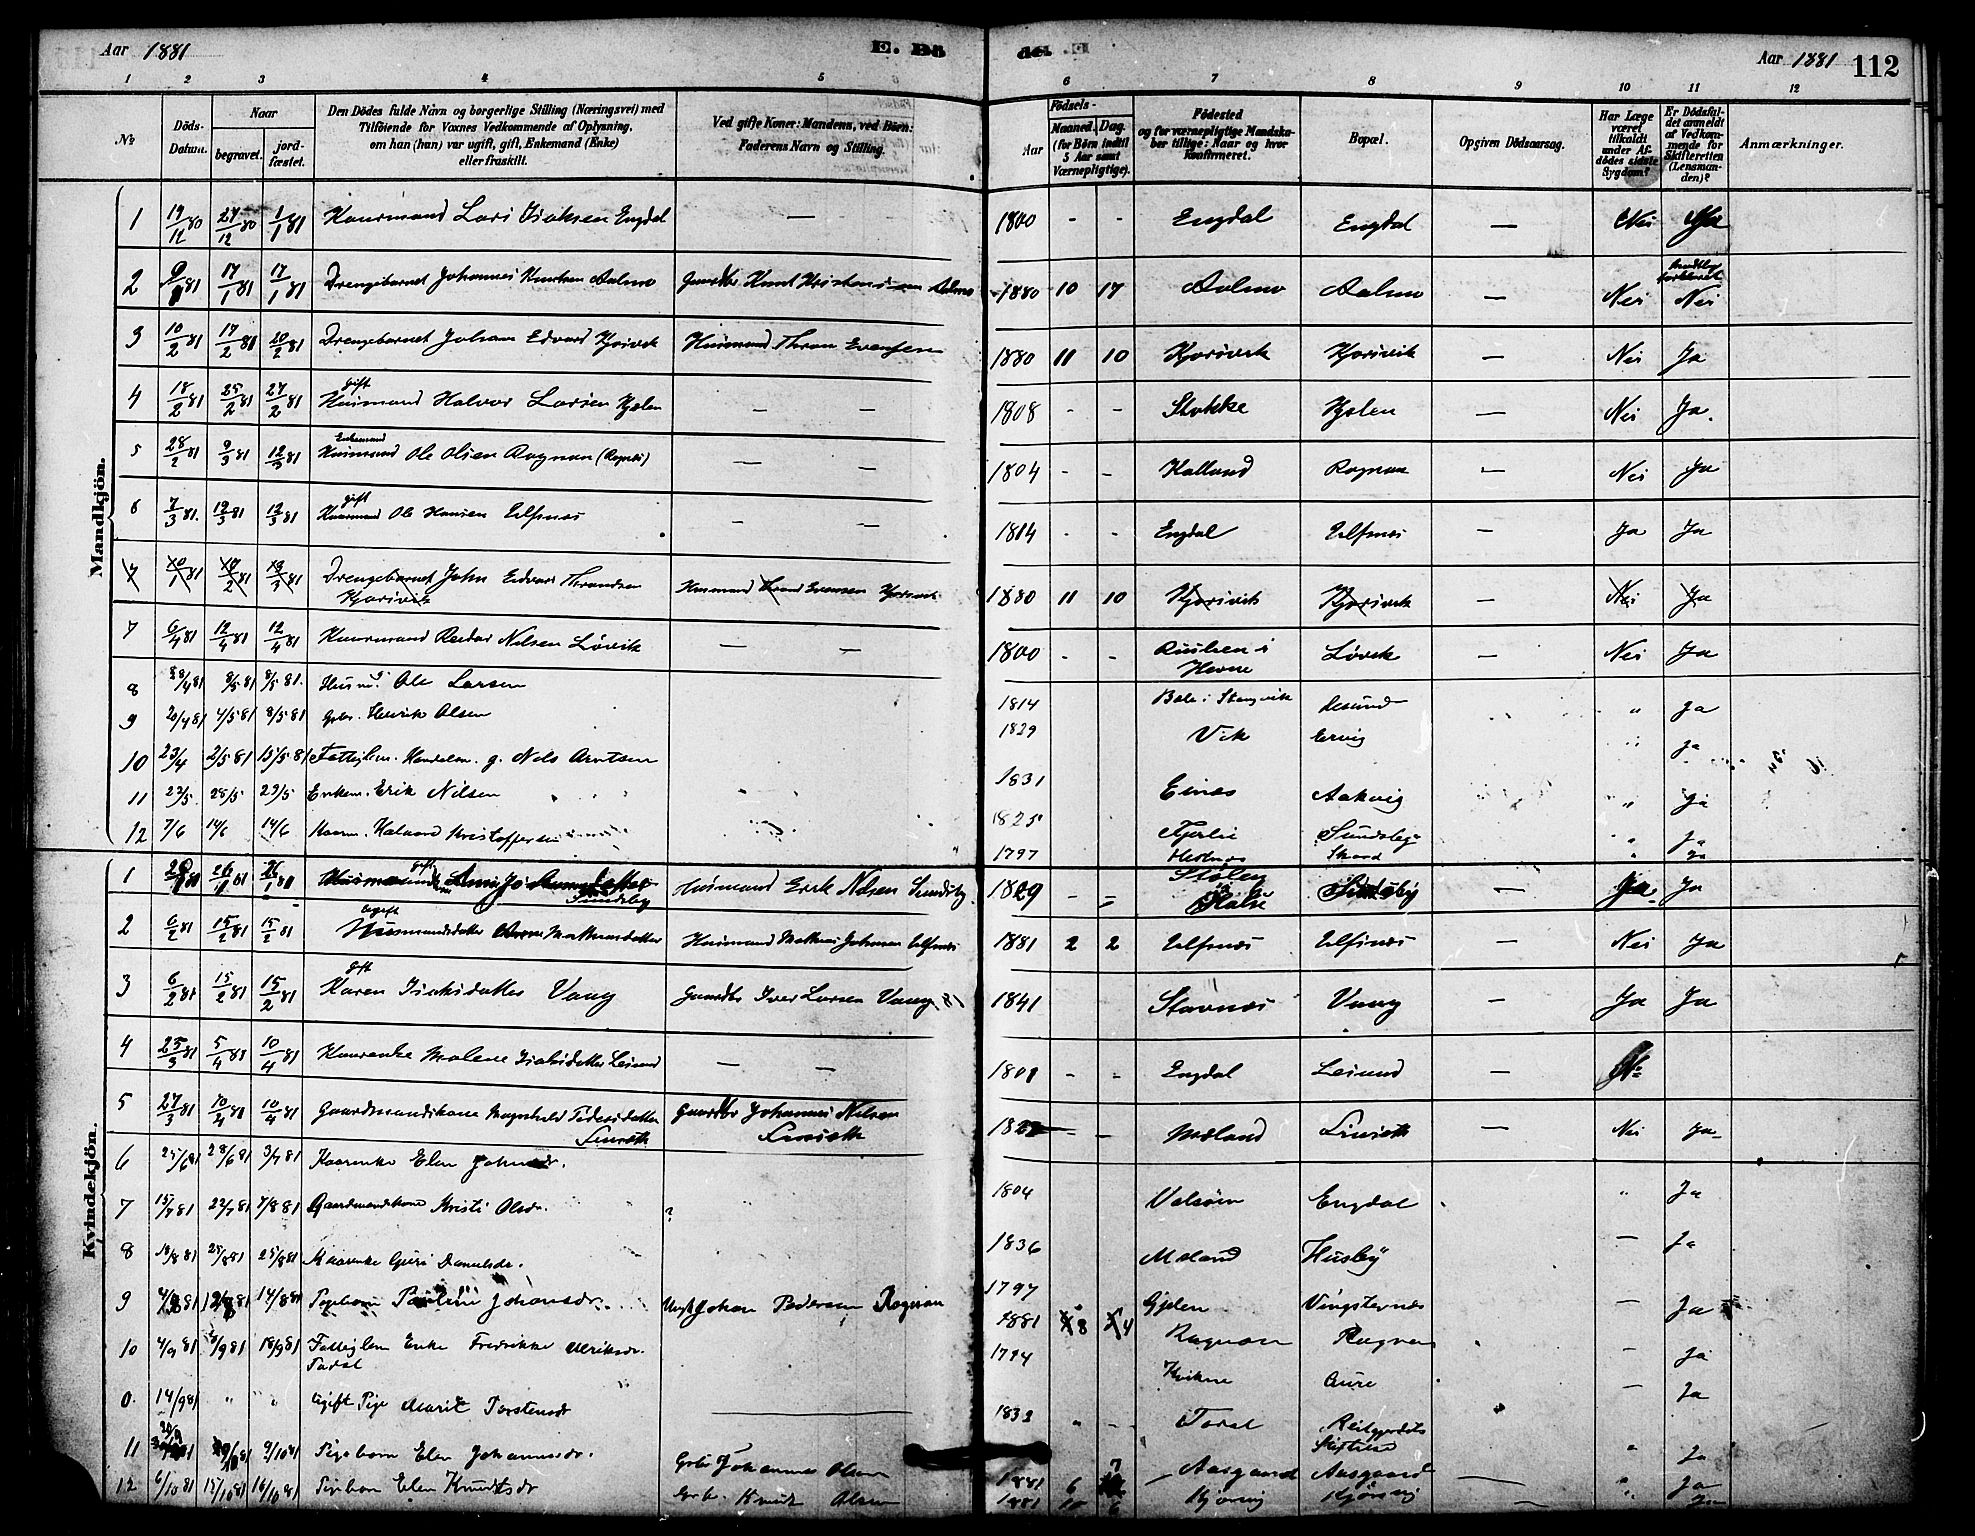 Aar 1881
E. Dö
de. E
Aar 1881 112
1 2 3 4 5 6 7 8 9 10 11 12
No
Döds-Datum.
Naar
begravet.
jordfæstet.
Den Dödes fulde Navn og borgerlige Stilling (Næringsvei) med
Tilföiende for Voxnes Vedkommende af Oplysning,
om han (hun) var ugift, gift, Enkemand (Enke)
eller fraskilt.
Ved gifte Koner: Mandens, ved Börn:
Faderens Navn og Stilling.
Födsels-
Aar
Maaned. Dag.
(for Börn indtil
5 Aar samt
Værnepligtige).
Födested
og for værnepligtige Mandskaber tillige: Naar og hvor
Konfirmeret.
Bopæl.
Opgiven Dödsaarsag.
Har Læge været tilkaldt under Afdödes sidste Sygdom?
Er Dödsfaldet anmeldt af Vedkommende for Skifteretten (Lensmanden)?
Anmærkninger.
Mandkjön.
1 19/12 80 27/12 80 1/1 81 Kaarmand Lars Isaksen Engdal — 1800 - - Engdal Engdal — Nei Ja
2 9/1 81 17/1 81 17/1 81 Drengebarnet Johannes Knutsen Aalmo Gaardbr Knut Kristensen Aalmo 1880 10 17 Aalmo Aalmo — Nei Nei
3 10/2 81 17/2 81 20/2 81 Drengebarnet Johan Edvard Kjorsvik Husmand Thron Evensen 1880 11 10 Kjorsvik Kjorsvik — Nei Ja
4 18/2 81 25/2 81 27/2 81 gift Husmand Halvor Larsen Hjelen — — 1808 - - Stokke Hjelen — Nei Ja.
5 28/2 81 9/3 81 12/3 81 Enkemand Husmand Ole Olsen Rognan (Rognæs) — — 1804 - - Halland Rognan — Nei Ja
6 7/3 81. 12/3 81 12/3 81 gift Kaarmand Ole Hansen Ulfsnæs — — 1814 - - Engdal Ulfsnæs — Ja Ja
7 10/1 81 17/2 81 13/3 81 Drengebarnet John Edvard Throndsen Kjorsvik Husmand Thrond Evensen Kjorsvik 1880 11 10 Kjorsvik Kjorsvik — Nei Ja
7 6/4 81 12/4 81 12/4 81 Kaarmand Reidar Nilsen Løvik — — 1800 - - i Hevne Løvik — Nei Ja
8 28/4 81 8/5 81 8/5 81. Husm. g Ole Larsen 1814 Bele i Stangvik Aesund " Ja
9 20/4 81 4/5 81 8/5 81 Gbr. Henrik Olsen 1829 Vik Ervig " Ja
10 23/4 2/5 81 15/5 81 Fattiglem. g. Nils Arntsen 1831 Einæs Aakvig " Ja
11 22/5. 28/5 29/5 Enkem. Erik Nilsen 1825 Fjerlie Sundsby " Ja
12 7/6 14/6 14/6 Kaarm. Halvard Kristoffersen 1797 Skard " Ja
Kvindekjön.
1 26/1 81 26/1 81 gift Sundsby Husmand Erik Nilsen Sundsby 1829 - - Stølen i Halse Sundsby — Ja Ja
2 6/2 81 15/2 81 15/2 81 Ugift Husmandsdatter Mathiasdatter Husmand Mathias Johansen Ulfsnæs 1881 2 2 Ulfsnæs Ulfsnæs — Nei Ja
3 6/2 81 15/2 81 15/2 81 gift Karen Isaksdatter Vaag Gaardbr Iver Larsen Vaag 1841 Stavnæs Vaag — Ja Ja
4 25/3 81 5/4 81 10/4 81 Kaarenke Malene Isaksdatter Leisund — — 1801 - - Engdal Leisund —
5 27/3 81 10/4 81 10/4 81 Gaardmandskone Magnhild Pedersdatter Gaardbr Johannes Nilsen — Mæland — Nei Ja
6 25/6 81 28/6 81 3/7 81 Kaarenke Elen Johnsdr. 1804 Valsøen Engdal " Ja
7 15/7 81 22/7 81 7/8 81 Gaardmandskone Kristi Olsdr. ? 1836 Mæland Husby — Ja
8 18/8 81 25/8 81 25/8 81 Kaarenke Guri Danielsdr. 1797 Gjelen Vingsternæs
9 14/8 81 Pigebarn Johansdr. Ungk. Johan Pedersen Rognan 1881 8 4 Rognan Rognan — Ja
10 4/9 81 9/9 81 18/9 81 Fattiglem Enke Fredrikke Ulriksdr. Todal 1794 Kvikne Aure — Ja
0. 14/9 81 " " Ugift Pige Marit Torstensdr 1832 " - Todal Reitgjerdets Stiftelse — Ja
11 9/10 81 Pigebarn Elen Johannesdr. Gbr. Johannes Olsen 1881 6 7 Aasgaard Aasgaard " Ja
12 6/10 81 15/10 81 16/10 81 Pigebarn Elen Knudtsdr Gbr. Knudt Olsen 1881 10 6 Kjørsvig Kjørsvig " Ja